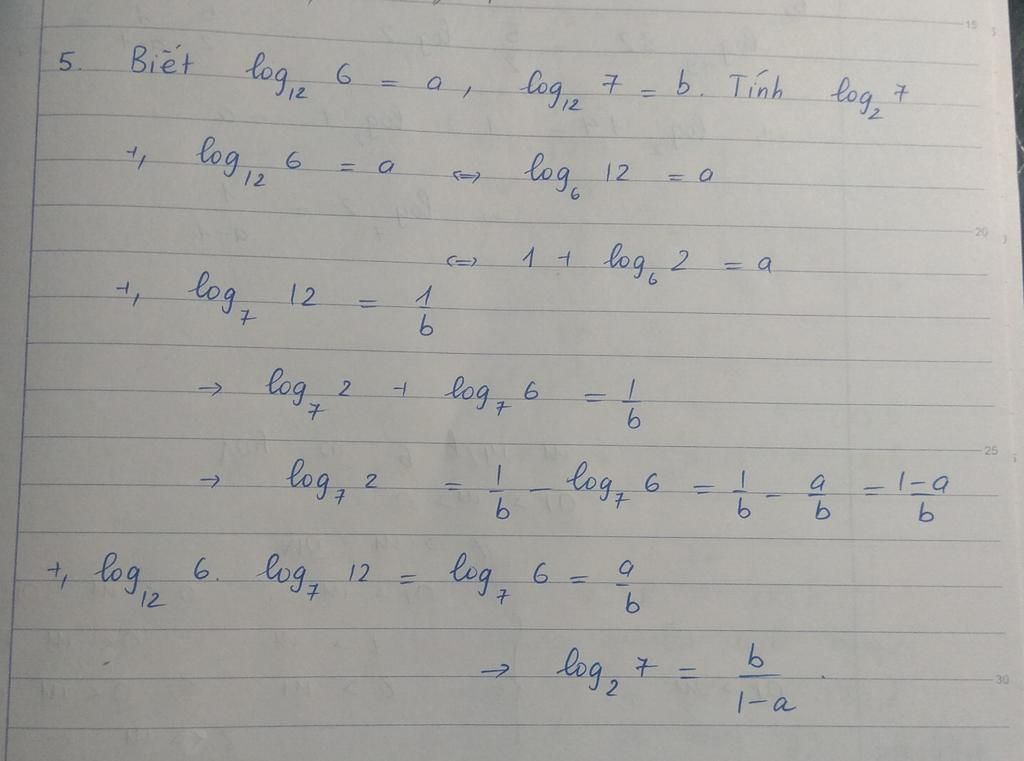 5. Biết log₁₂ 6 = a, log₁₂ 7 = b. Tính log₂ 7
+, log₁₂ 6 = a ⇔ log₆ 12 = a
⇔ 1 + log₆ 2 = a
+, log₇ 12 = 1/b
→ log₇ 2 + log₇ 6 = 1/b
→ log₇ 2 = 1/b - log₇ 6 = 1/b - a/b = (1-a)/b
+, log₁₂ 6. log₇ 12 = log₇ 6 = a/b
→ log₂ 7 = b/(1-a).
15
20
25
30